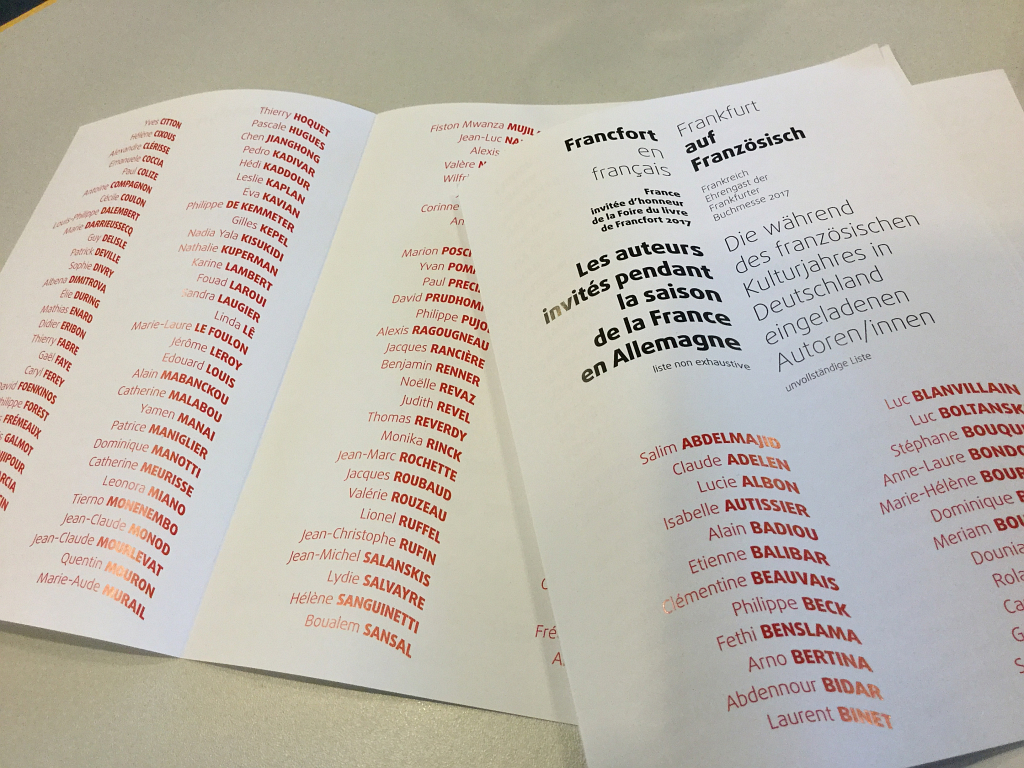 Yves CITTON
Hélène CIXOUS
Alexandre CLÉRISSE
Emanuele COCCIA
Paul COLIZE
Antoine COMPAGNON
Cécile COULON
Louis-Philippe DALEMBERT
Marie DARRIEUSSECQ
Guy DELISLE
Patrick DEVILLE
Sophie DIVRY
Albena DIMITROVA
Elie DURING
Mathias ENARD
Didier ERIBON
Thierry FABRE
Gaël FAYE
Caryl FEREY
David FOENKINOS
Philippe FOREST
FRÉMEAUX
GALMOT
Thierry HOQUET
Pascale HUGUES
Chen JIANGHONG
Pedro KADIVAR
Hédi KADDOUR
Leslie KAPLAN
Eva KAVIAN
Philippe DE KEMMETER
Gilles KEPEL
Nadia Yala KISUKIDI
Nathalie KUPERMAN
Karine LAMBERT
Fouad LAROUI
Sandra LAUGIER
Linda LÊ
Marie-Laure LE FOULON
Jérôme LEROY
Edouard LOUIS
Alain MABANCKOU
Catherine MALABOU
Yamen MANAI
Patrice MANIGLIER
Dominique MANOTTI
Catherine MEURISSE
Leonora MIANO
Tierno MONENEMBO
Jean-Claude MONOD
Jean-Claude MOURLEVAT
Quentin MOURON
Marie-Aude MURAIL
Fiston Mwanza MUJIL
Jean-Luc
Alexis
Valère
Wilfr
Corinne
Marion POSC
Yvan POMM
Paul PRECI
David PRUDHOM
Philippe PUJO
Alexis RAGOUGNEAU
Jacques RANCIÈRE
Benjamin RENNER
Noëlle REVAZ
Judith REVEL
Thomas REVERDY
Monika RINCK
Jean-Marc ROCHETTE
Jacques ROUBAUD
Valérie ROUZEAU
Lionel RUFFEL
Jean-Christophe RUFIN
Jean-Michel SALANSKIS
Lydie SALVAYRE
Hélène SANGUINETTI
Boualem SANSAL
Fré
Francfort
en
français
France
invitée d'honneur
de la Foire du livre
de Francfort 2017
Les auteurs
invités pendant
la saison
de la France
en Allemagne
liste non exhaustive
Frankfurt
auf
Französisch
Frankreich
Ehrengast der
Frankfurter
Buchmesse 2017
Die während
des französischen
Kulturjahres in
Deutschland
eingeladenen
Autoren/innen
unvollständige Liste
Salim ABDELMAJID
Claude ADELEN
Lucie ALBON
Isabelle AUTISSIER
Alain BADIOU
Etienne BALIBAR
Clémentine BEAUVAIS
Philippe BECK
Fethi BENSLAMA
Arno BERTINA
Abdennour BIDAR
Laurent BINET
Luc BLANVILLAIN
Luc BOLTANSK
Stéphane BOUQU
Anne-Laure BONDO
Marie-Hélène BOUR
Dominique
Meriam BOU
Dounia
Rola